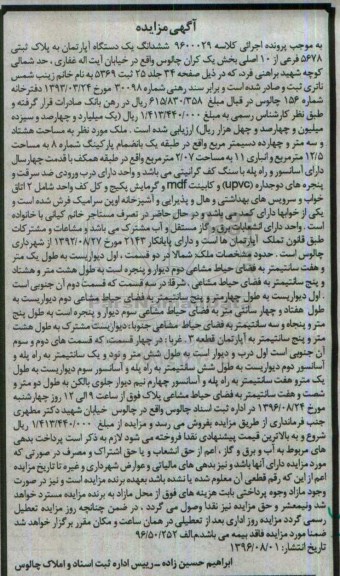 آگهی مزایده
به موجب پرونده اجرائی کلاسه ۹۶۰۰۰۲۹ ششدانگ یک دستگاه آپارتمان به پلاک ثبتی
۵۶۷۸ فرعی از ۱۰ اصلی بخش یک کران چالوس واقع در خیابان آیت اله غفاری ، حد شمالی
کوچه شهید براهنی فرد، که در ذیل صفحه ۳۴ جلد ۲۵ ثبت ۵۳۶۹ به نام خانم زینب شمس
ناتری ثبت و صادر شده است و برابر سند رهنی شماره ۳۰۰۹۸ مورخ ۱۳۹۳/۰۳/۲۴ دفترخانه
شماره ۱۵۶ چالوس در قبال مبلغ ۶۱۵/۸۳۰/۳۵۸ ریال در رهن بانک صادرات قرار گرفته و
طبق نظر کارشناس رسمی به مبلغ ۱/۴۱۳/۴۴۰/۰۰۰ ریال (یک میلیارد و چهارصد و سیزده
میلیون و چهارصد و چهل هزار ریال) ارزیابی شده است . ملک مورد نظر به مساحت هشتاد
و سه متر و چهارده دسیمتر مربع واقع در طبقه یک بانضمام پارکینگ شماره ۸ به مساحت
۱۲/۵ مترمربع و انباری ۱۱ به مساحت ۲/۰۷ مترمربع واقع در طبقه همکف با قدمت چهار سال
دارای آسانسور و راه پله با سنگ کف گرانیتی می باشد و واحد دارای درب ورودی ضد سرقت و
پنجره های دوجداره (upvc) و کابینت mdf و گرمایش پکیج و کل کف واحد شامل ۲ اتاق
خواب و سرویس های بهداشتی و هال و پذیرایی و آشپزخانه اوپن سرامیک فرش شده است و
یکی از خوابها دارای کمد می باشد و در حال حاضر در تصرف مستاجر خانم کیانی با خانواده
است . واحد دارای انشعابات برق و گاز مستقل و آب مشترک می باشد و مشاعات و مشترکات
طبق قانون تملک آپارتمان ها است و دارای پایانکار ۲۱۴۳ مورخ ۱۳۹۲/۰۸/۲۷ از شهرداری
چالوس است . حدود مشخصات ملک شمالا در دو قسمت ، اول دیواریست به طول یک متر
و هفت سانتیمتر به فضای حیاط مشاعی دوم دیوار و پنجره است به طول هشت متر و هشتاد
و پنج سانتیمتر به فضای حیاط مشاعی . شرقا در سه قسمت که قسمت دوم آن جنوبی است
. اول دیواریست به طول چهار متر و پنج سانتیمتر به فضای حیاط مشاعی دوم دیواریست به
طول هفتاد و چهار سانتی متر به فضای حیاط مشاعی سوم دیوار و پنجره است به طول پنج
متر و پنجاه و سه سانتیمتر به فضای حیاط مشاعی جنوبا: دیواریست مشترک به طول هشت
متر و پنج سانتیمتر به آپارتمان قطعه ۳ . غربا : در چهار قسمت، که قسمت های دوم و سوم
آن جنوبی است اول درب و دیوار است به طول شش متر و نود و یک سانتیمتر به راه پله و
آسانسور دوم دیواریست به طول شش سانتیمتر به راه پله و آسانسور سوم دیواریست به طول
یک متر و هفت سانتیمتر به راه پله و آسانسور چهارم نیم دیوار جلوی بالکن به طول دو متر و
شصت و هفت سانتیمتر به فضای حیاط مشاعی پلاک فوق از ساعت ۹ الی ۱۲ روز چهارشنبه
مورخ ۱۳۹۶/۰۸/۲۴ در اداره ثبت اسناد چالوس واقع در چالوس خیابان شهید دکتر مطهری
جنب فرمانداری از طریق مزایده بفروش می رسد و مزایده از مبلغ ۱/۴۱۳/۴۴۰/۰۰۰ ریال
شروع و به بالاترین قیمت پیشنهادی نقدا فروخته می شود لازم به ذکر است پرداخت بدهی
های مربوط به آب و برق و گاز ، اعم از حق انشعاب و یا حق اشتراک و مصرف در صورتی که
مورد مزایده دارای آنها باشد و نیز بدهی های مالیاتی و عوارض شهرداری و غیره تا تاریخ مزایده
اعم از این که رقم قطعی آن معلوم شده یا نشده باشد بعهده برنده مزایده است و نیز در صورت
وجود مازاد وجوه پرداختی بابت هزینه های فوق از محل مازاد به برنده مزایده مسترد خواهد
شد ونیمعشر و حق مزایده نیز نقدا وصول می گردد ، در ضمن چنانچه روز مزایده تعطیل
رسمی گردد مزایده روز اداری بعد از تعطیلی در همان ساعت و مکان مقرر برگزار خواهد شد
ضمنا مورد مزایده فاقد بیمه می باشد.م/الف ۹۶/۵۰/۲۵۲
تاریخ انتشار: ۱۳۹۶/۰۸/۰۱
ابراهیم حسین زاده – رییس اداره ثبت اسناد و املاک چالوس